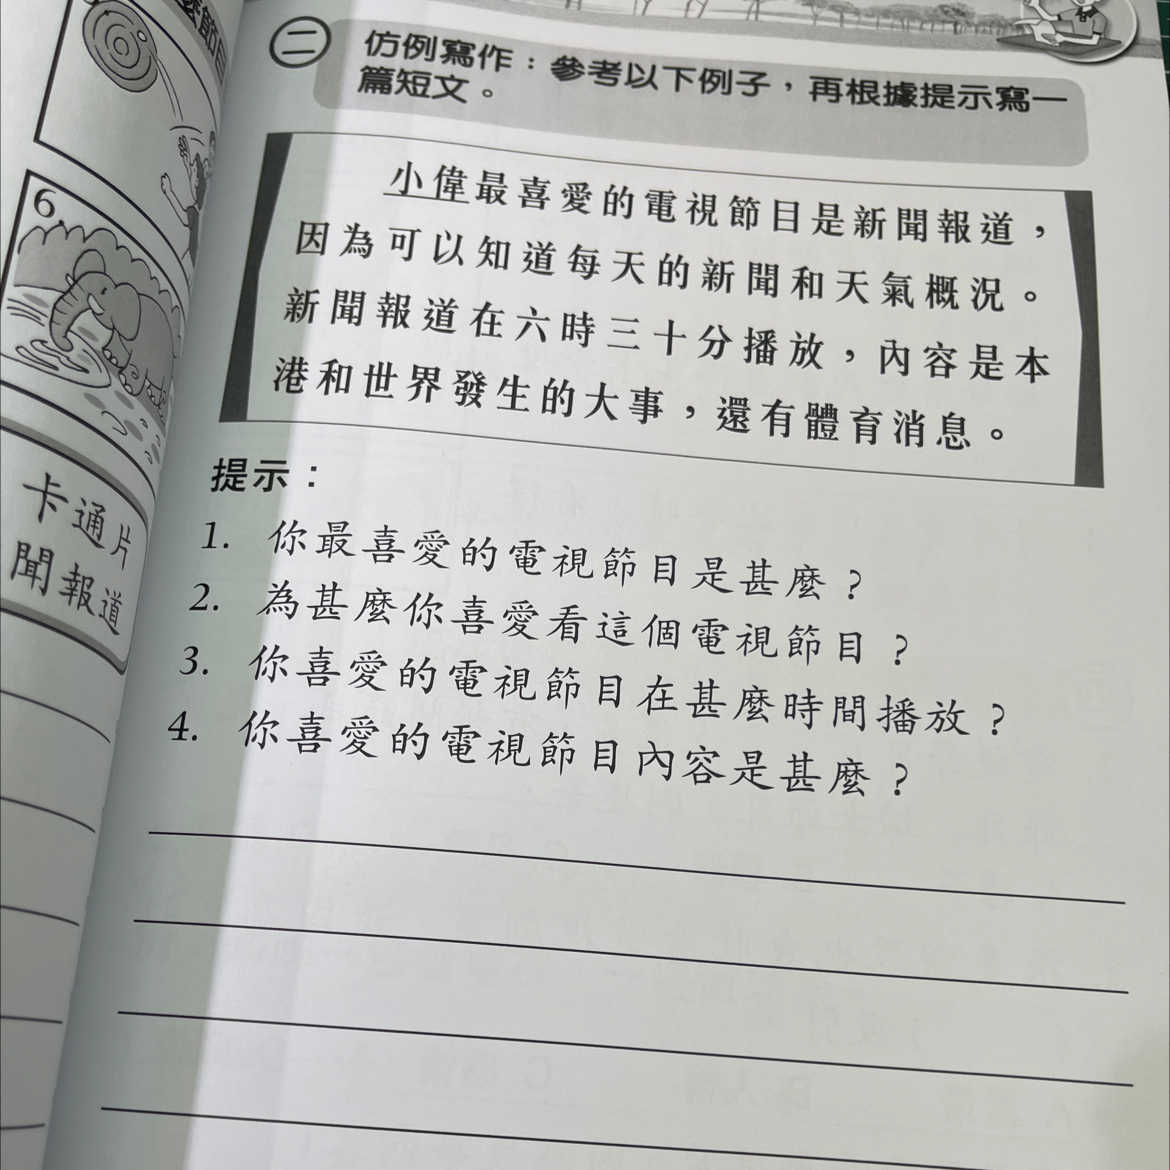 麼節目
6.
卡通片
聞報道
㊁ 仿例寫作：參考以下例子，再根據提示寫一
篇短文。
小偉最喜愛的電視節目是新聞報道，
因為可以知道每天的新聞和天氣概況。
新聞報道在六時三十分播放，內容是本
港和世界發生的大事，還有體育消息。
提示：
1. 你最喜愛的電視節目是甚麼？
2. 為甚麼你喜愛看這個電視節目？
3. 你喜愛的電視節目在甚麼時間播放？
4. 你喜愛的電視節目內容是甚麼？